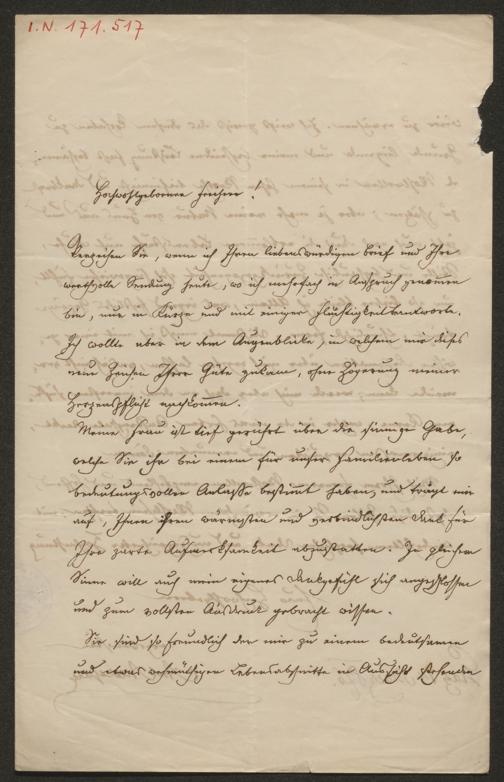 I.N. 171.517
Hochwohlgeborener Freiherr!
Verzeihen Sie, wenn ich Ihren liebenswürdigen Brief und Ihre
werthvolle Sendung heute, wo ich mehrfach in Anspruch genommen
bin, nur in Kürze und mit einiger Flüchtigkeit beantworte.
Ich wollte aber in dem Augenblicke, in welchem mir dieses
neue Zeichen Ihrer Güte zukam, ohne Zögerung meiner
Herzenspflicht nachkommen.
Meine Frau ist tief gerührt über die sinnige Gabe,
welche Sie ihr bei einem für unser Familienleben so
bedeutungsvollen Anlasse bestimmt haben, und trägt mir
auf, Ihnen ihren wärmsten und verbindlichsten Dank für
Ihre zarte Aufmerksamkeit abzustatten. In gleichem
Sinne will auch mein eigenes Dankgefühl sich angeschlossen
und zum vollsten Ausdruck gebracht wissen.
Sie sind so freundlich der mir zu einem bedeutsamen
und etwas wehmüthigen Lebensabschnitte in Aussicht stehenden